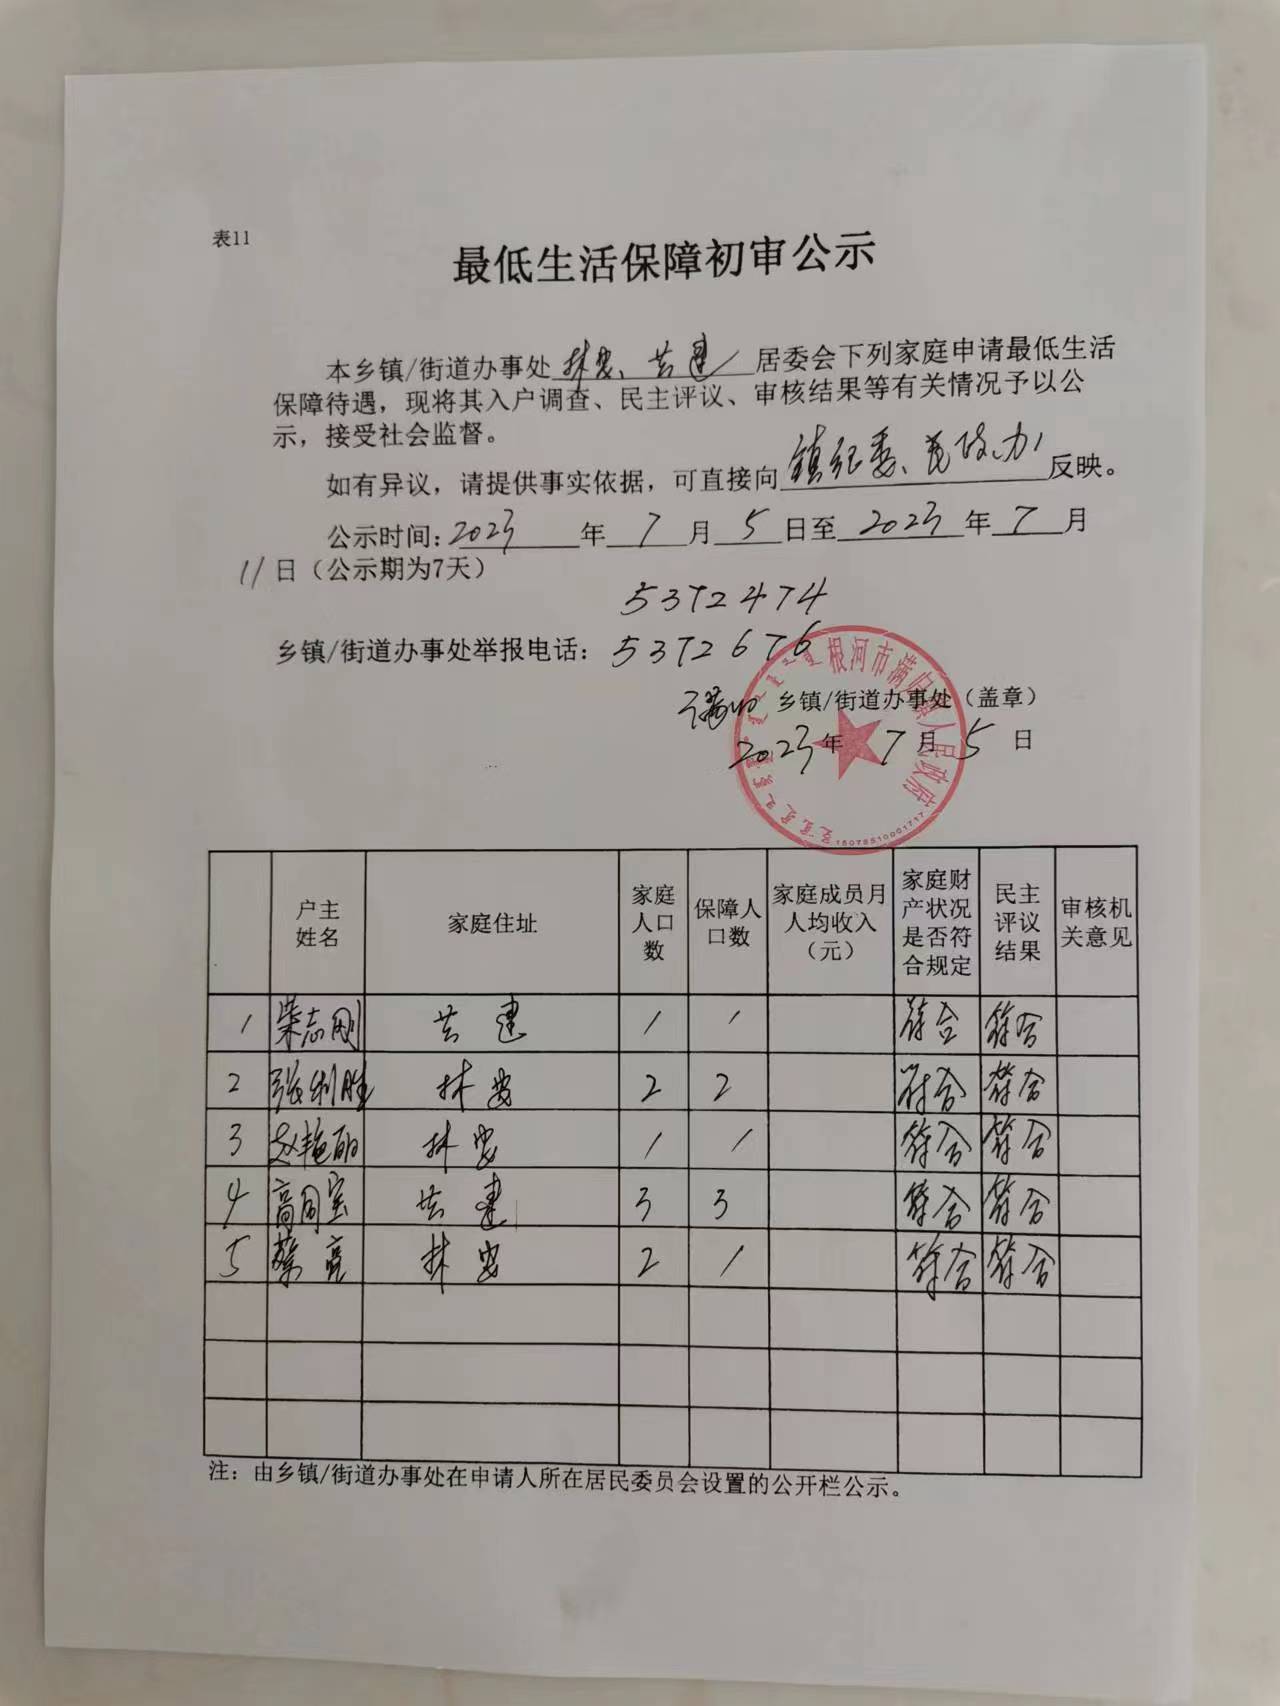 表11
最低生活保障初审公示
本乡镇/街道办事处林安、共建居委会下列家庭申请最低生活
保障待遇，现将其入户调查、民主评议、审核结果等有关情况予以公
示，接受社会监督。
如有异议，请提供事实依据，可直接向镇纪委、民政办反映。
公示时间：2023年7月5日至2023年7月
11日（公示期为7天）
5372474
乡镇/街道办事处举报电话：5372676
满归乡镇/街道办事处（盖章）
2023年7月5日
根河市满归镇人民政府
户主姓名 家庭住址 家庭人口数 保障人口数 家庭成员月人均收入（元） 家庭财产状况是否符合规定 民主评议结果 审核机关意见
1 柴志刚 共建 1 1 符合 符合
2 张利胜 林安 2 2 符合 符合
3 赵艳丽 林安 1 1 符合 符合
4 高同宝 共建 3 3 符合 符合
5 蔡亮 林安 2 1 符合 符合
注：由乡镇/街道办事处在申请人所在居民委员会设置的公开栏公示。